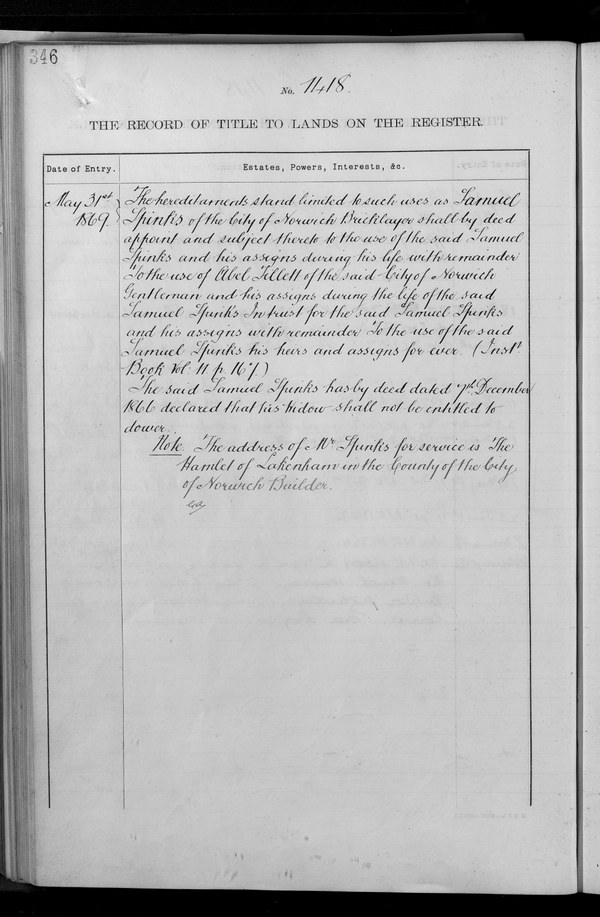 346
No. 1418.
THE RECORD OF TITLE TO LANDS ON THE REGISTER.
Date of Entry.
Estates, Powers, Interests, &c.
May 31st 1869
The hereditaments stand limited to such uses as Samuel
Spinks of the City of Norwich Bricklayer shall by deed
appoint and subject thereto to the use of the said Samuel
Spinks and his assigns during his life with remainder
To the use of Abel Tillett of the said City of Norwich
Gentleman and his assigns during the life of the said
Samuel Spinks In trust for the said Samuel Spinks
and his assigns with remainder To the use of the said
Samuel Spinks his heirs and assigns for ever. (Inst.
Book Vol 11 p. 167)
The said Samuel Spinks has by deed dated 7th December
1866 declared that his widow shall not be entitled to
dower.
Note. The address of Mr. Spinks for service is The
Hamlet of Lakenham in the County of the City
of Norwich Builder.